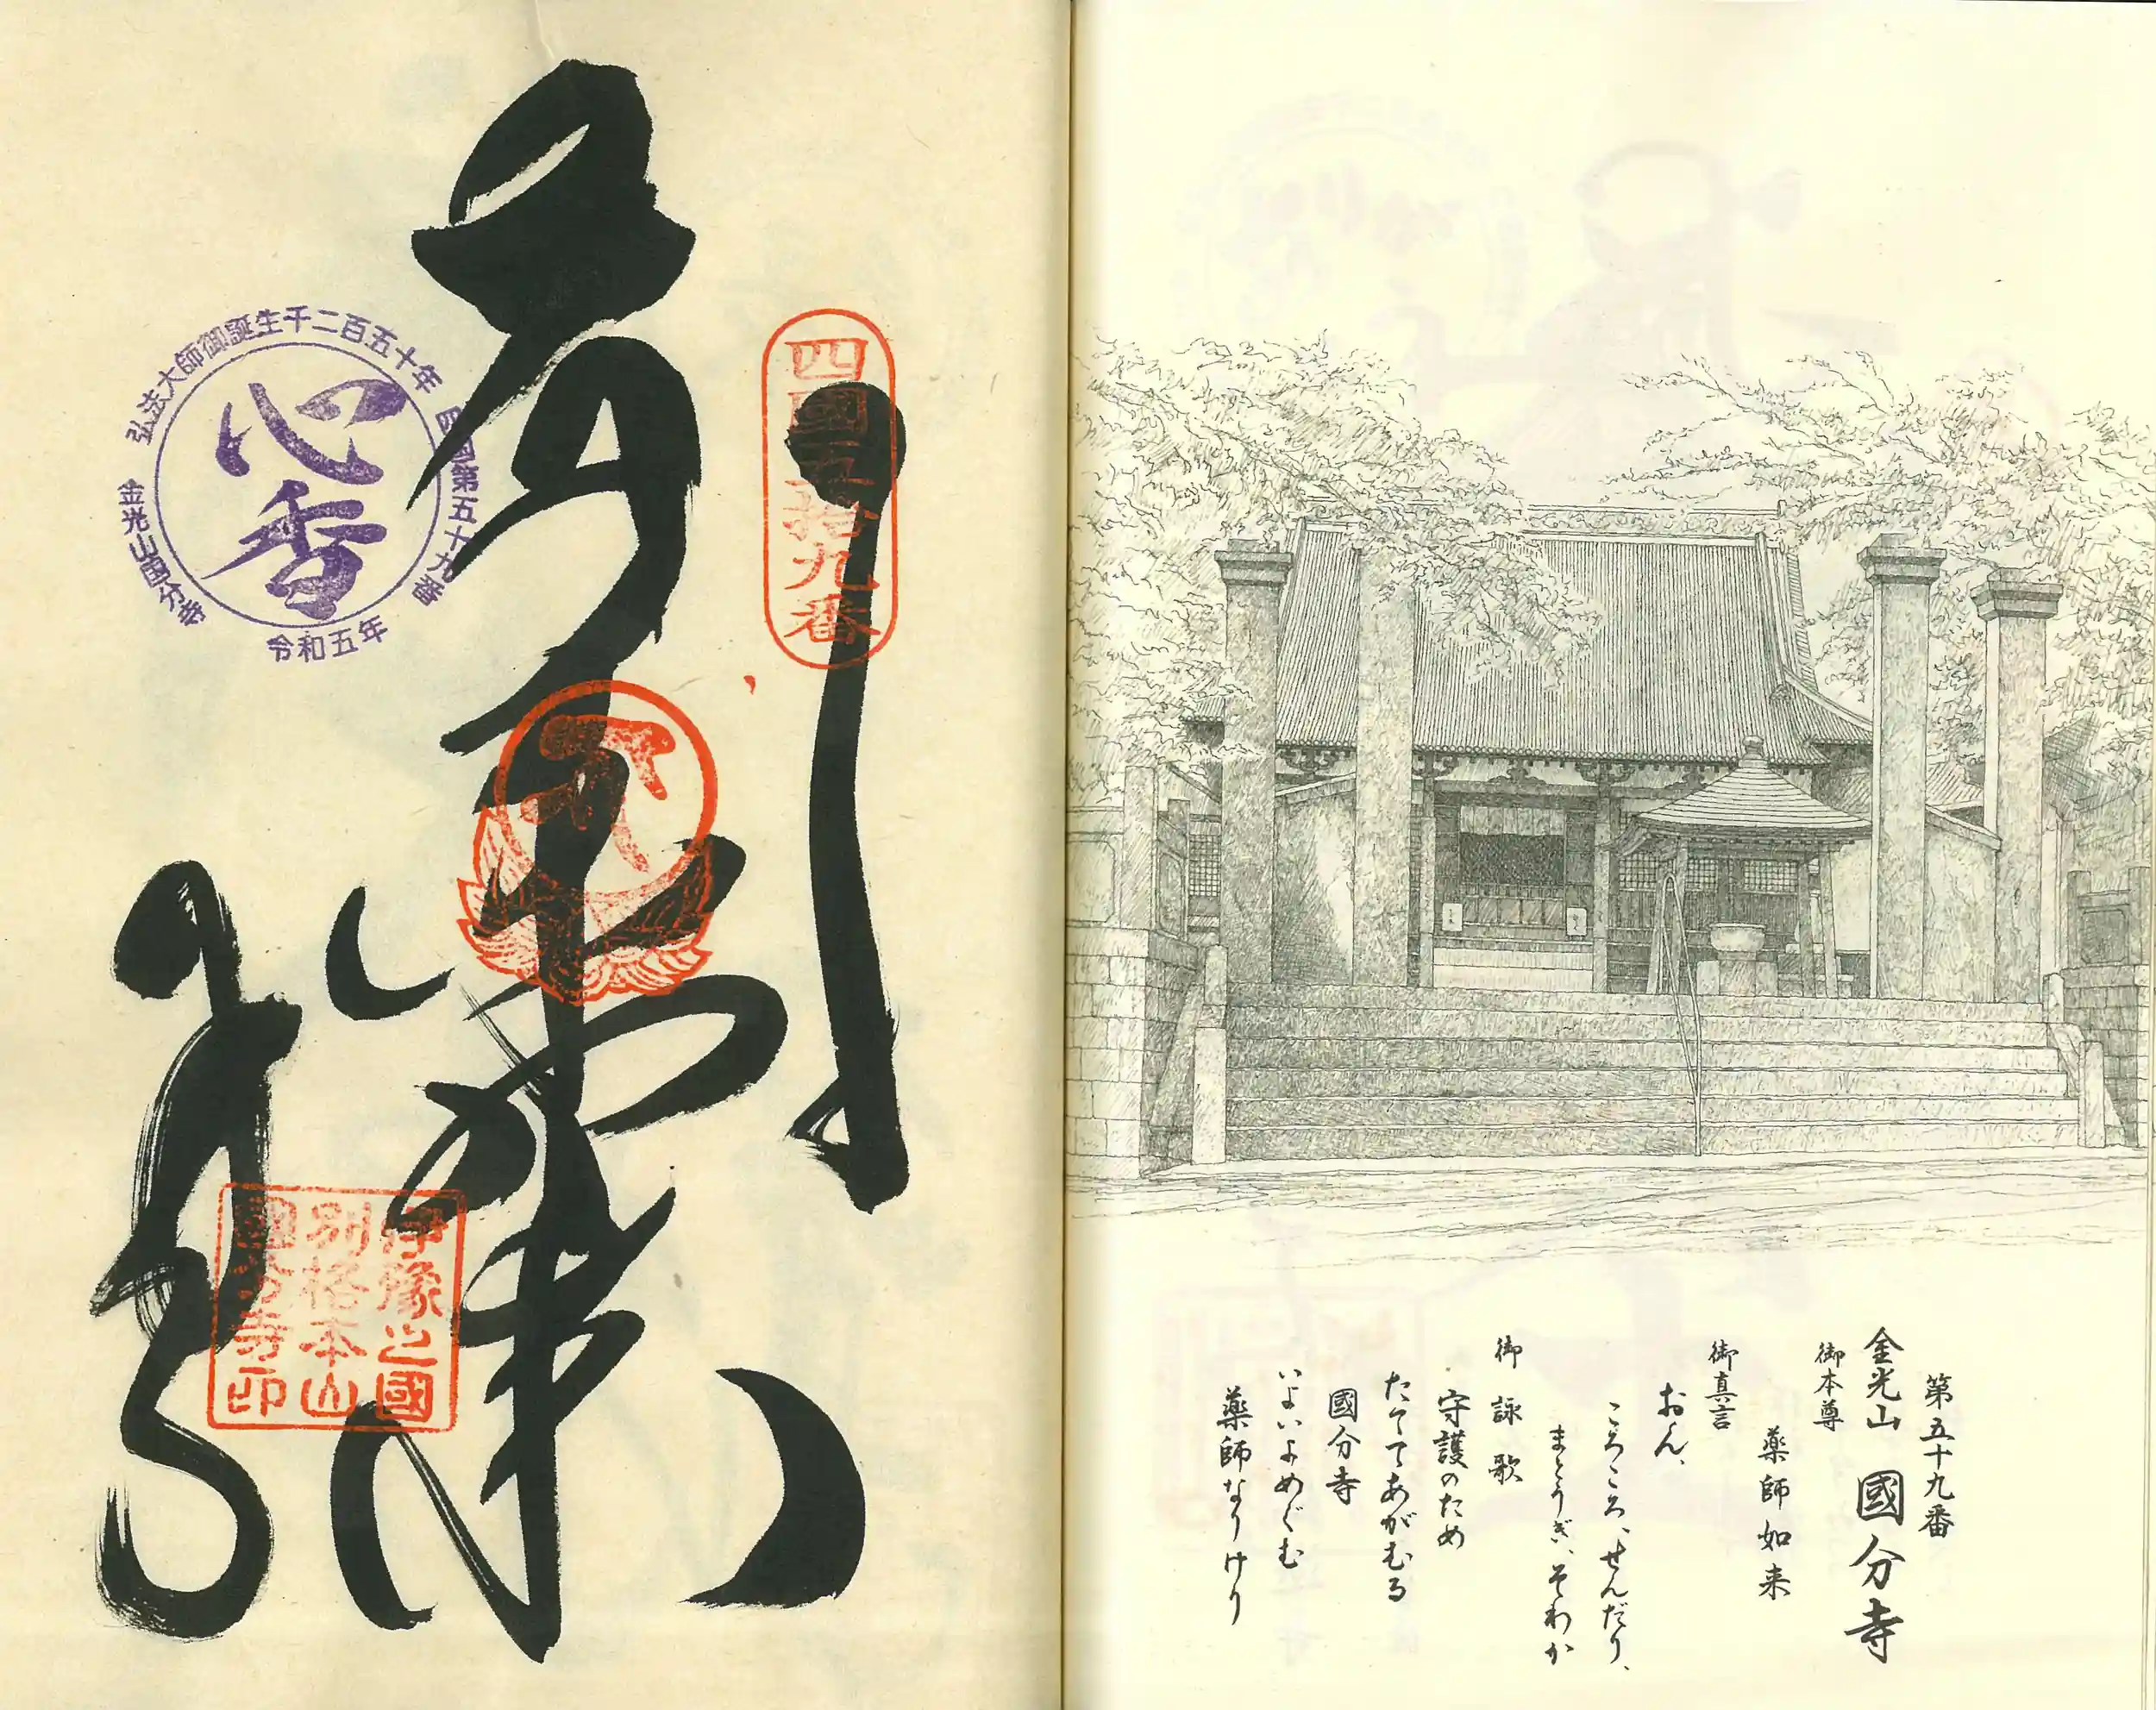 第五十九番
金光山 國分寺
御本尊
薬師如来
御真言
おん、
ころころ、せんだり、
まとうぎ、そわか
御詠歌
守護のため
たててあがむる
國分寺
いよいよめぐむ
薬師なりけり
四國五拾九番
伊豫之國
別格本山
國分寺印
弘法大師御誕生千二百五十年
四国第五十九番
金光山国分寺
令和五年
心香